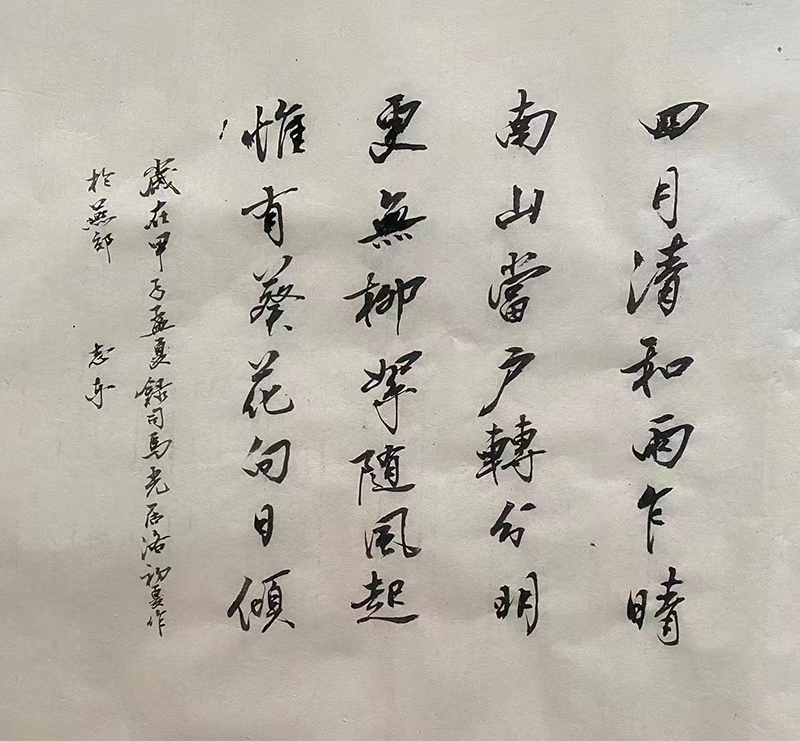 四月清和雨乍晴
南山當户轉分明
更無柳絮随風起
惟有葵花向日傾
歲在甲子孟夏録司馬光居洛初夏作
於燕郊 志